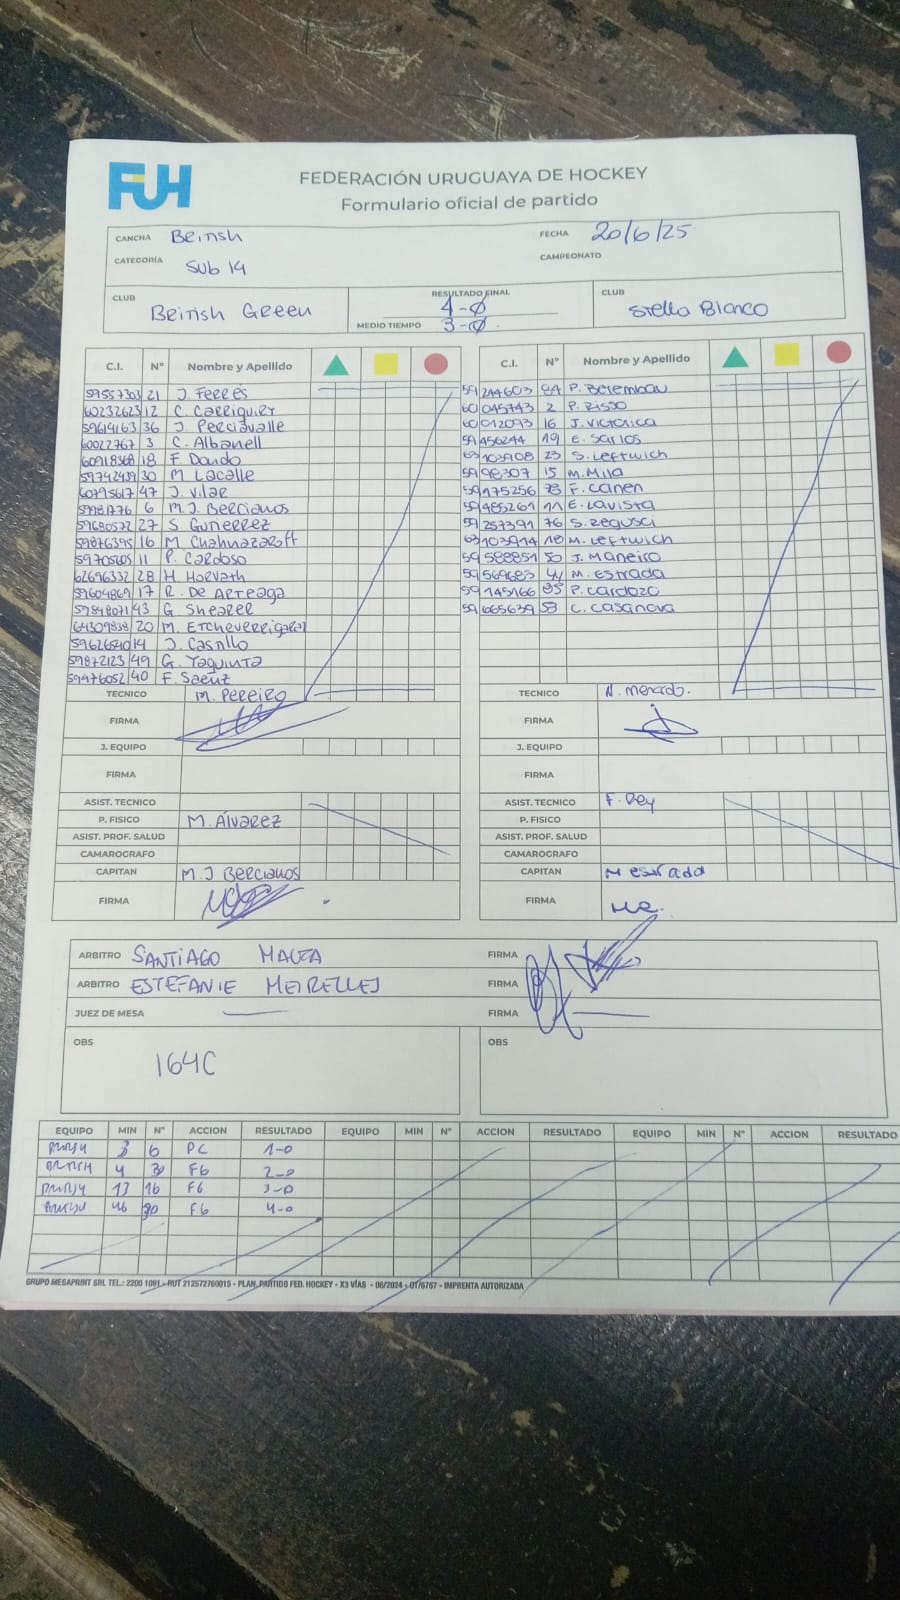 FUH
FEDERACIÓN URUGUAYA DE HOCKEY
Formulario oficial de partido
CANCHA British FECHA 20/6/25
CATEGORÍA Sub 14 CAMPEONATO
CLUB British Green RESULTADO FINAL 4-0 CLUB Stella Blanco
MEDIO TIEMPO 3-0
C.I. N° Nombre y Apellido C.I. N° Nombre y Apellido
59557303 21 J. Ferrés
60232623 12 C. Carriquiry
59614163 36 J. Perciavalle
60022767 3 C. Albanell
60918368 18 F. Dondo
59742439 30 M Lacalle
60795617 47 J. Vilar
6 M.J. Bercianos
59680572 27 S. Gutierrez
59876395 16 M Chahnazaroff
11 P. Cardoso
62696332 28 H Horvath
59604869 17 R. De Arteaga
43 G. Shearer
20 M. Etcheverrigaray
14 J. Castillo
59872123 49 G. Yaquinta
59976052 40 F. Saenz
59 244603 P. Berembau
60 045743 2 P. Risso
60 012093 16 J. Victorica
59 456244 19 E. Sarlos
63 103908 23 S. Leftwich
15 M. Mila
59 175256 F. Canen
59 485261 11 E. Lavista
59 257391 76 S. Regusci
63 103914 M. Leftwich
59 588851 50 J. Maneiro
59 569683 44 M. Estrada
P. Cardozo
59 665639 53 C. Casanova
TECNICO M. Pereiro TECNICO N. Mercado.
FIRMA FIRMA
J. EQUIPO J. EQUIPO
FIRMA FIRMA
ASIST. TECNICO ASIST. TECNICO F. Rey
P. FISICO M. Álvarez P. FISICO
ASIST. PROF. SALUD ASIST. PROF. SALUD
CAMAROGRAFO CAMAROGRAFO
CAPITAN M.J Bercianos CAPITAN M estrada
FIRMA FIRMA
ARBITRO SANTIAGO FIRMA
ARBITRO ESTEFANIE MEIRELLES FIRMA
JUEZ DE MESA FIRMA
OBS OBS
164C
EQUIPO MIN N° ACCION RESULTADO EQUIPO MIN N° ACCION RESULTADO EQUIPO MIN N° ACCION RESULTADO
6 PC 1-0
BRITISH 4 30 FG 2-0
13 16 FG 3-0
46 30 FG 4-0
GRUPO MEGAPRINT SRL TEL.: 2200 1091 - RUT 212572760015 - PLAN. PARTIDO FED. HOCKEY - X3 VÍAS - 06/2024 - OT/6767 - IMPRENTA AUTORIZADA